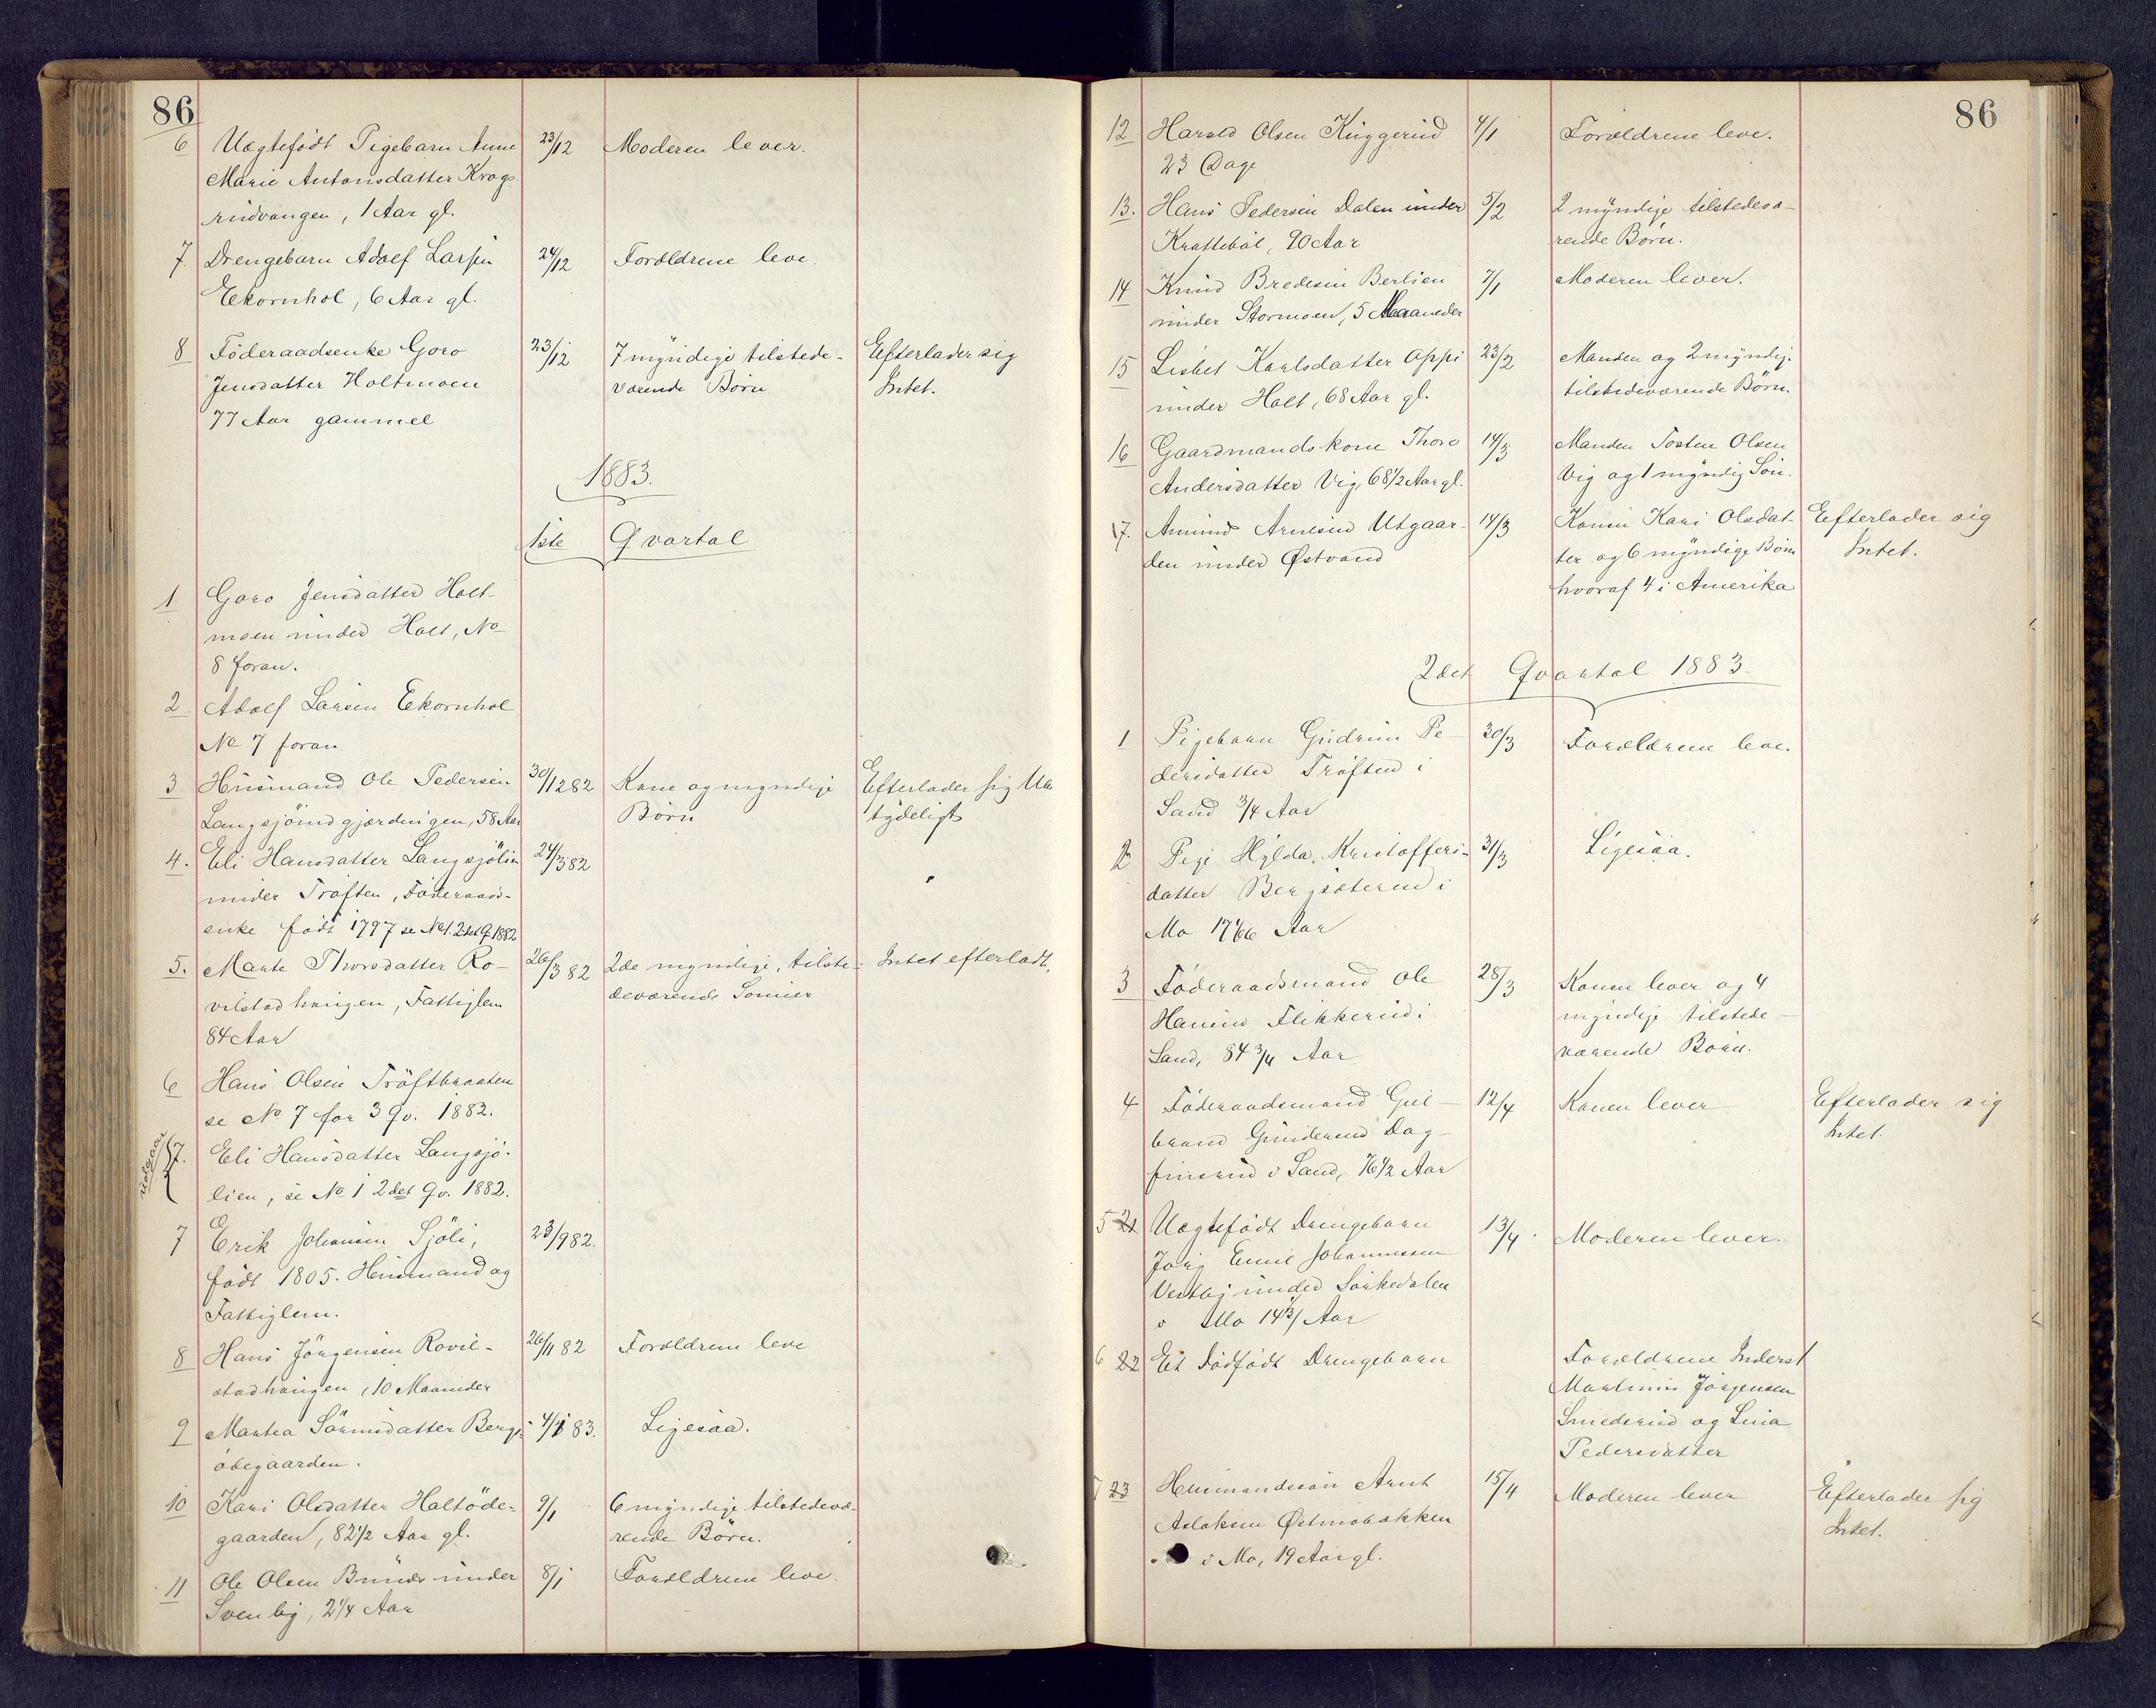 86
6 Uægtefödt Pigebarn Anne 23/12 Moderen lever.
Marie Antonsdatter Krogs
rudvangen, 1 Aar gl.
7. Drengebarn Adolf Larsen 24/12 Forældrene leve.
Ekornhol, 6 Aar gl.
8 Föderaadsenke Goro 23/12 7 myndige tilstede- Efterlader sig
Jensdatter Holtmoen værende Börn Intet.
77 Aar gammel
1883.
1ste Qvartal
1 Goro Jensdatter Holt-
moen under Holt, No
8 foran.
2 Adolf Larsen Ekornhol
No 7 foran
3 Husmand Ole Pedersen 30/1282 Kone og myndige Efterlader sig Ube
Langsjöindgjærdingen, 58 Aar Börn tydeligt
4. Eli Hansdatter Langsjölien 24/382
under Tröften, Föderaads-
enke födt 1797 se No 1. 2det Q 1882
5. Marte Thorsdatter Ro- 26/382 2de myndige, tilste- Intet efterladt.
vilstadhaugen, Fattiglem deværende Sönner
84 Aar
6 Hans Olsen Tröftbraaten
se No 7 for 3 Qv. 1882.
udgaar 7. Eli Hansdatter Langsjö-
lien, se No 1 2det Qv. 1882.
7 Erik Johansen Sjöli, 23/982.
födt 1805. Husmand og
Fattiglem.
8 Hans Jörgensen Rovil- 26/1182 Forældrene leve
stadhaugen, 10 Maaneder
9 Martea Sörensdatter Bergs- 4/1 83. Ligesaa.
ödegaarden.
10 Kari Olsdatter Holtöde- 9/1 6 myndige tilstedevæ-
gaarden, 82 1/2 Aar gl. rende Börn.
11 Ole Olsen Brunes under 8/1 Forældrene leve.
Svenby, 2 1/4 Aar
86
12 Harald Olsen Kuggerud 4/1 Forældrene leve.
23 Dage
13. Hans Pedersen Dalen under 5/2 2 myndige tilstedevæ-
Krattebøl, 90 Aar rende Börn.
14 Knud Bredesen Berlien 7/1 Moderen lever.
under Stormoen, 5 Maaneder
15 Lisbet Karlsdatter Oppi 23/2 Manden og 2 myndige
under Holt, 68 Aar gl. tilstedeværende Börn.
16 Gaardmandskone Thoro 14/3 Manden Tosten Olsen
Andersdatter Vig, 68 1/2 Aar gl. Vig og 1 myndig Sön.
17. Amund Arnesen Utgaar- 14/3 Konen Kari Olsdat- Efterlader sig
den under Østvand ter og 6 myndige Börn Intet.
hvoraf 4 i Amerika
2det Qvartal 1883.
1 Pigebarn Gudrun Pe- 30/3 Forældrene leve.
dersdatter Tröften i
Sand 3/4 Aar
2 Pige Hylda Kristoffers- 31/3 Ligesaa.
datter Bergsæterud i
Mo Aar
3 Föderaadsmand Ole 28/3 Konen lever og 4
Hansen Flikkerud i myndige tilstede-
Sand, 84 3/4 Aar værende Börn.
4 Föderaadsmand Gul- 12/4 Konen lever Efterlader sig
brand Gundersen Dag- Intet.
finsrud i Sand, 76 1/2 Aar
5 21 Uægtefödt Drengebarn 13/4 Moderen lever.
Emil Johannessen
under Sorkedalen
i Mo Aar
6 22 Et dödfödt Drengebarn Forældrene Inderst
Martinus Jörgensen
Smedsrud og Lina
Pedersdatter
7 23 Husmandssön Arnt 15/4 Moderen lever Efterlader sig
Aslaksen Østmobakken Intet.
i Mo, 19 Aar gl.